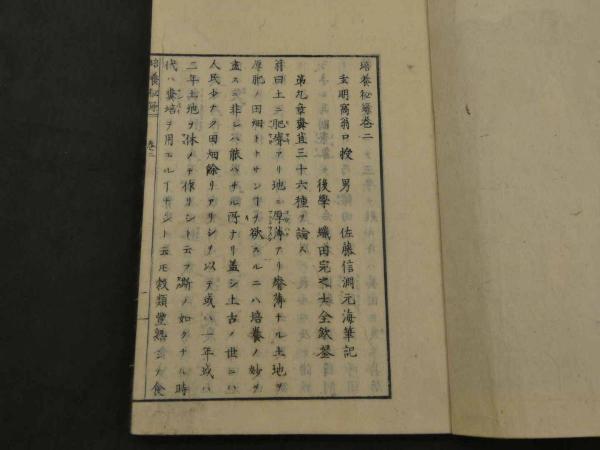 培養秘録巻二
玄明窩翁口授 男 佐藤信淵元海筆記
後学 織田完之士全欽鐫
第九章糞苴三十六種ヲ論ス
翁曰土ニ肥瘠アリ地ニ厚薄アリ瘠薄ナル土地ヲ
厚肥ノ田畑ナラサント欲スルニハ培養ノ妙ヲ
盡スニ非レハ能ハサル所ナリ蓋シ上古ノ世ニハ
人民少ナク田畑餘リアリシヲ以テ或ハ一年或ハ
二年土地ヲ休メテ作リシト云フ斯ノ如クナル時
代ハ糞培ヲ用ユル丁モ少シト云モ穀類豊熟シテ食
培養秘録 巻二